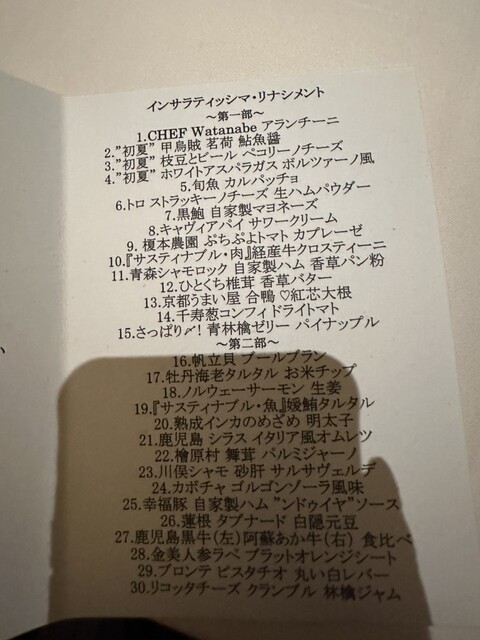 インサラティッシマ・リナシメント
〜第一部〜
1.CHEF Watanabe アランチーニ
2.”初夏” 甲烏賊 茗荷 鮎魚醤
3.”初夏” 枝豆とビール ペコリーノチーズ
4.”初夏” ホワイトアスパラガス ボルツァーノ風
5.旬魚 カルパッチョ
6.トロ ストラッキーノチーズ 生ハムパウダー
7.黒鮑 自家製マヨネーズ
8.キャヴィアパイ サワークリーム
9. 榎本農園 ぷちぷよトマト カプレーゼ
10.『サスティナブル・肉』経産牛クロスティーニ
11.青森シャモロック 自家製ハム 香草パン粉
12.ひとくち椎茸 香草バター
13.京都うまい屋 合鴨 ♡紅芯大根
14.千寿葱コンフィドライトマト
15.さっぱり〆! 青林檎ゼリー パイナップル
〜第二部〜
16.帆立貝 ブールブラン
17.牡丹海老タルタル お米チップ
18.ノルウェーサーモン 生姜
19.『サスティナブル・魚』媛鮪タルタル
20.熟成インカのめざめ 明太子
21.鹿児島 シラス イタリア風オムレツ
22.檜原村 舞茸 パルミジャーノ
23.川俣シャモ 砂肝 サルサヴェルデ
24.カボチャ ゴルゴンゾーラ風味
25.幸福豚 自家製ハム ”ンドゥイヤ”ソース
26.蓮根 タプナード 白隠元豆
27.鹿児島黒牛(左)阿蘇あか牛(右) 食比べ
28.金美人参ラペ ブラットオレンジシート
29.ブロンテ ピスタチオ 丸い白レバー
30.リコッタチーズ クランブル 林檎ジャム